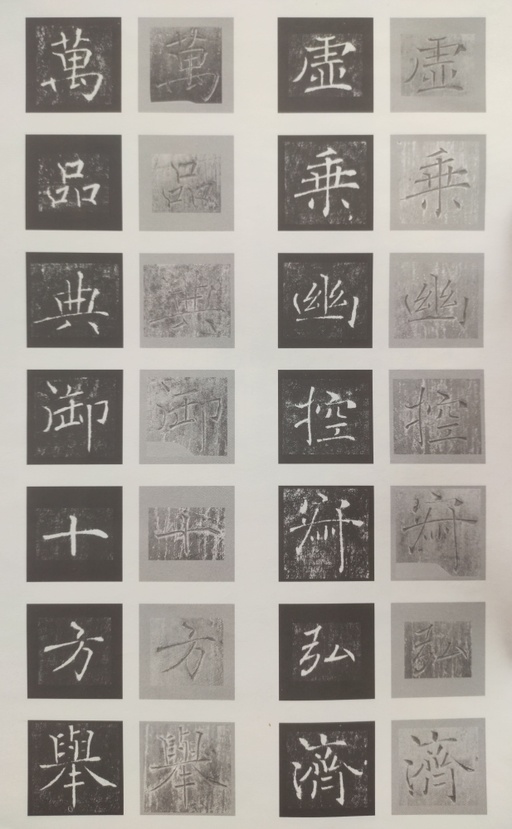 虛乘幽控寂弘濟
虛乘幽控寂弘濟
萬品典御十方舉
萬品典御十方舉